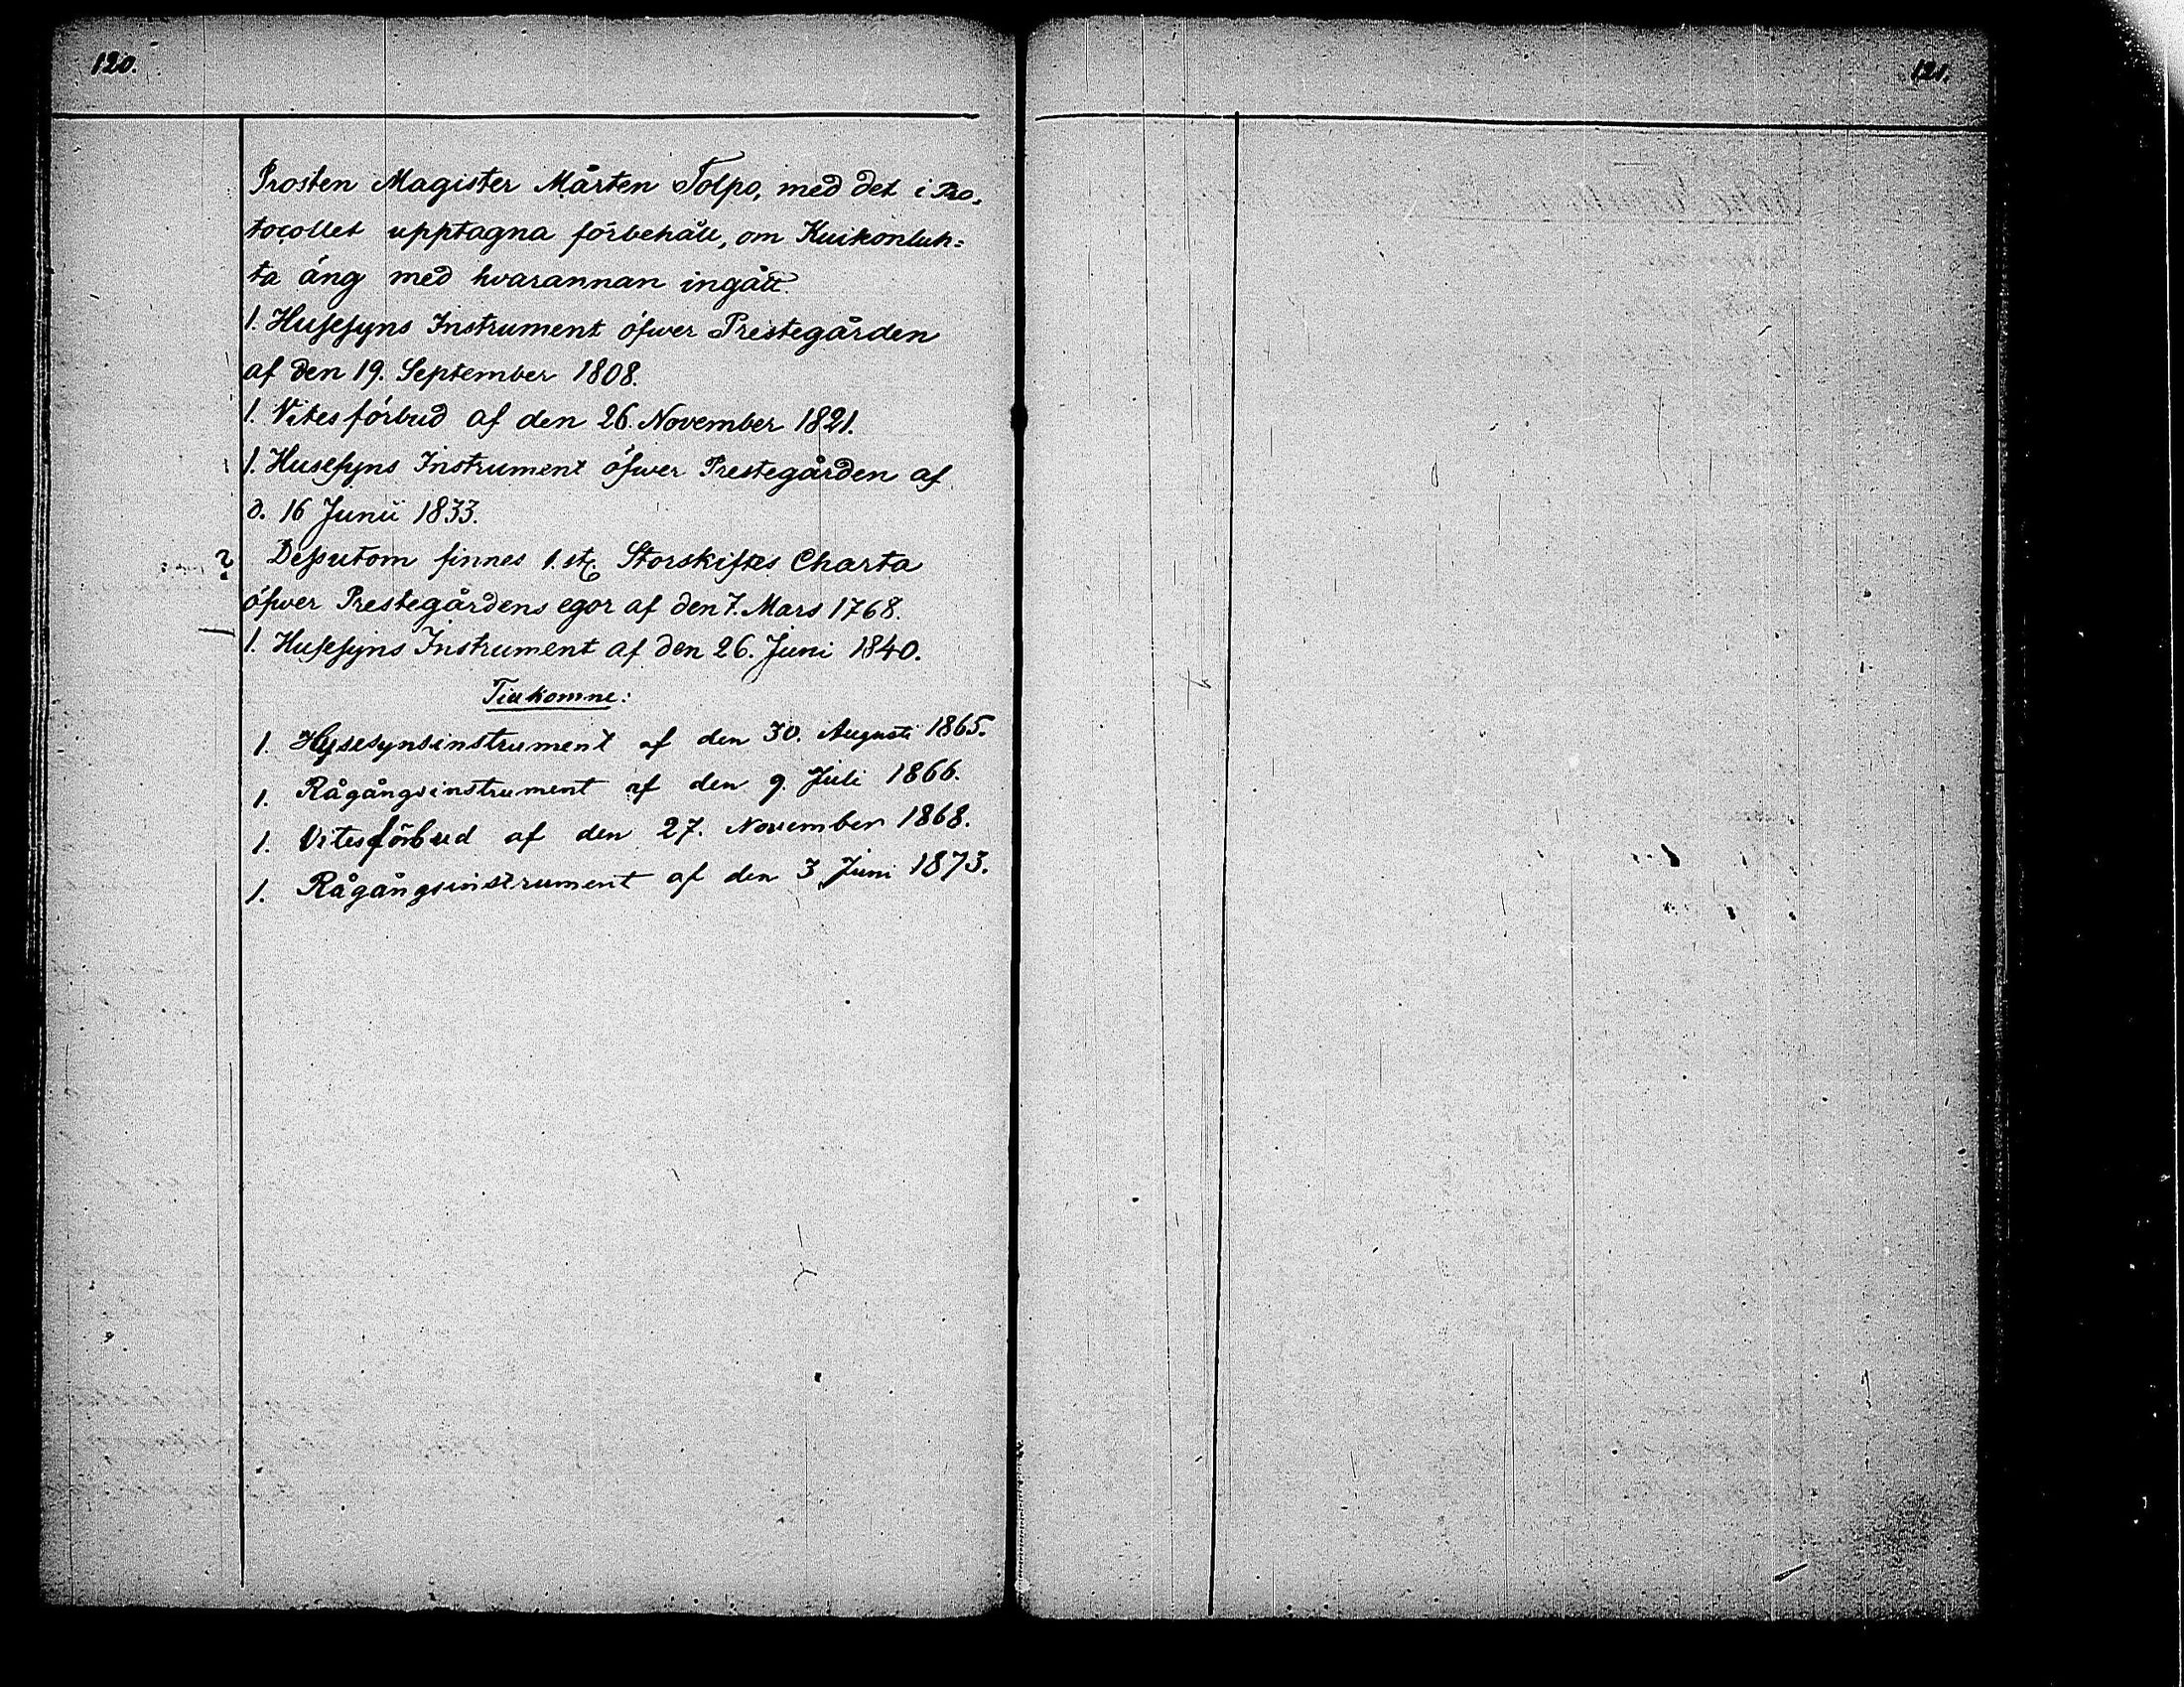 120.
121.
Prosten Magister Mårten Tolpo, med det i Pro-
tocollet upptagna förbehåll, om Kuikonluh=
ta äng med hvarannan ingått.
1. Husesyns Instrument öfwer Prestegården
af den 19. September 1808.
1. Vitesförbud af den 26. November 1821.
1. Husesyns Instrument öfwer Prestegården af
d. 16 Junii 1833.
? Dessutom finnes 1. st. Storskiftes Charta
öfwer Prestegårdens egor af den 7. Mars 1768.
1. Husesyns Instrument af den 26. Juni 1840.
Tillkomne:
1. Hysesynsinstrument af den 30. Augusti 1865.
1. Rågångsinstrument af den 9. Juli 1866.
1. Vitesförbud af den 27. November 1868.
1. Rågångsinstrument af den 3 Juni 1873.